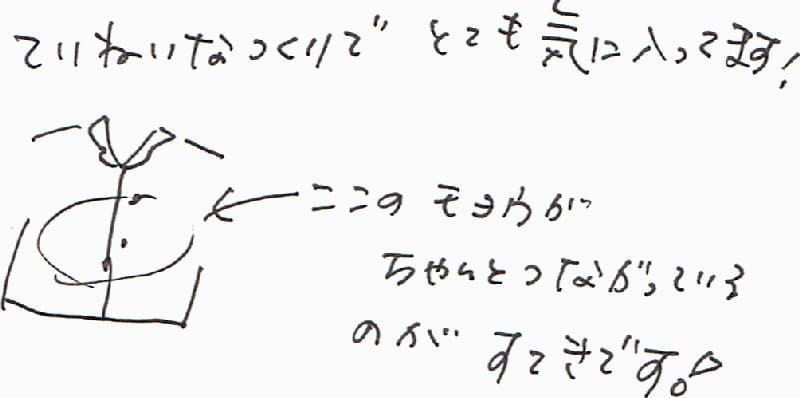 ていねいなつくりで とても気に入ってます!
ここの モヨウが
ちゃんとつながっている
のが すてきです。